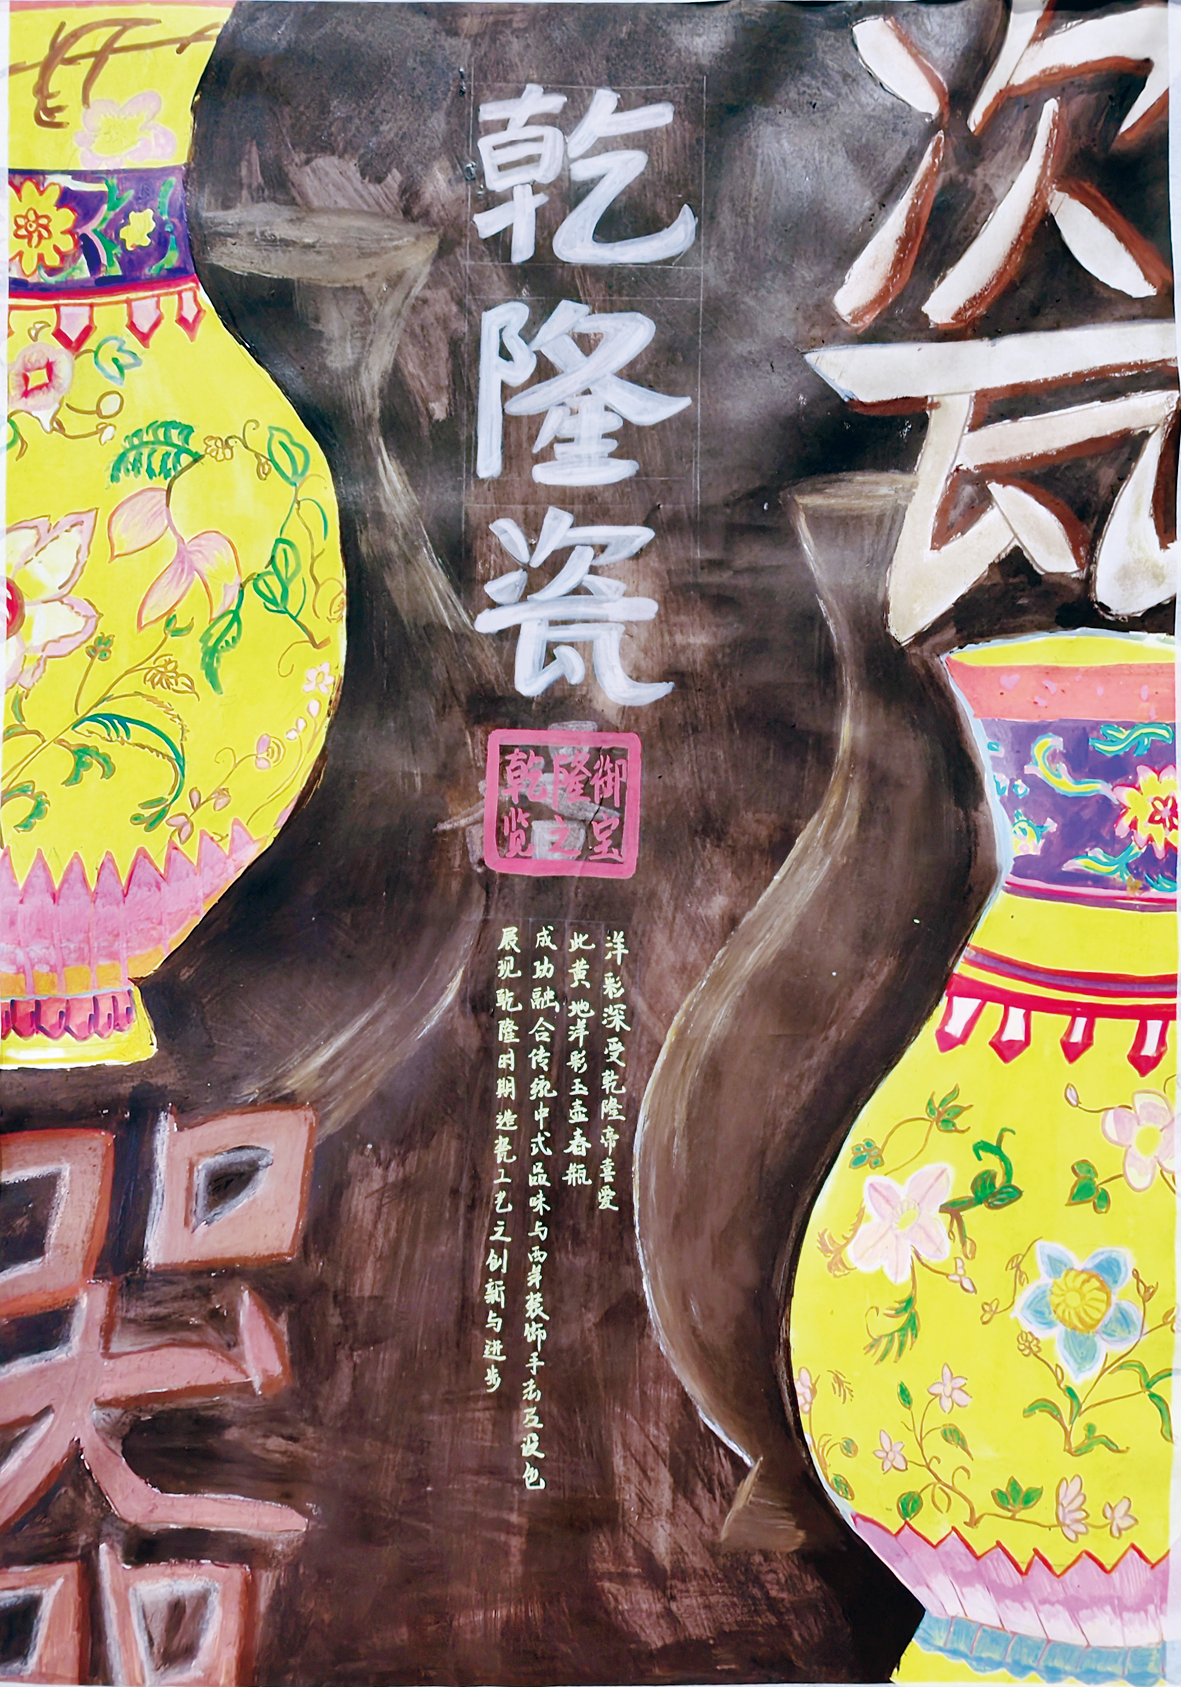 瓷
乾隆瓷
乾隆御
览之宝
洋彩深受乾隆帝喜爱
此黄地洋彩玉壶春瓶
成功融合传统中式品味与西洋装饰手法及设色
展现乾隆时期造瓷工艺之创新与进步
器